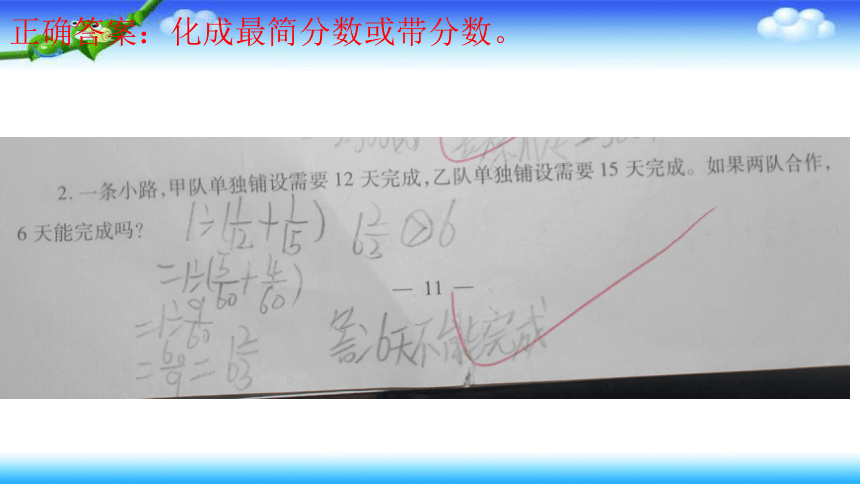 正确答案：化成最简分数或带分数。
2. 一条小路，甲队单独铺设需要 12 天完成，乙队单独铺设需要 15 天完成。如果两队合作，
6 天能完成吗？
1÷(1/12+1/15) 6 2/3 > 6
=1÷(5/60+4/60)
— 11 —
=1÷9/60
=60/9=6 2/3
答：6天不能完成